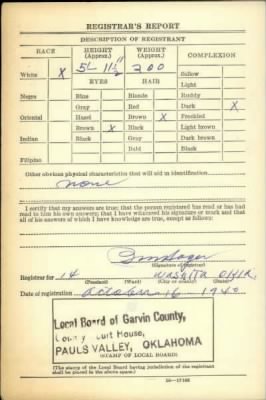 REGISTRAR'S REPORT
DESCRIPTION OF REGISTRANT
RACE HEIGHT (Approx.) WEIGHT (Approx.) COMPLEXION
White X 5 11½ 200 Sallow
EYES HAIR Light
Negro Blue Blonde Ruddy
Gray Red Dark X
Oriental Hazel Brown X Freckled
Brown X Black Light brown
Indian Black Gray Dark brown
Bald Black
Filipino
Other obvious physical characteristics that will aid in identification
none
I certify that my answers are true; that the person registered has read or has had read to him his own answers; that I have witnessed his signature or mark and that all of his answers of which I have knowledge are true, except as follows:
(Signature of registrar)
Registrar for 14 Washita Okla.
(Precinct) (Ward) (City or county) (State)
Date of registration October 16 1940
Local Board of Garvin County,
County Court House,
PAULS VALLEY, OKLAHOMA
(STAMP OF LOCAL BOARD)
(The stamp of the Local Board having jurisdiction of the registrant shall be placed in the above space.)